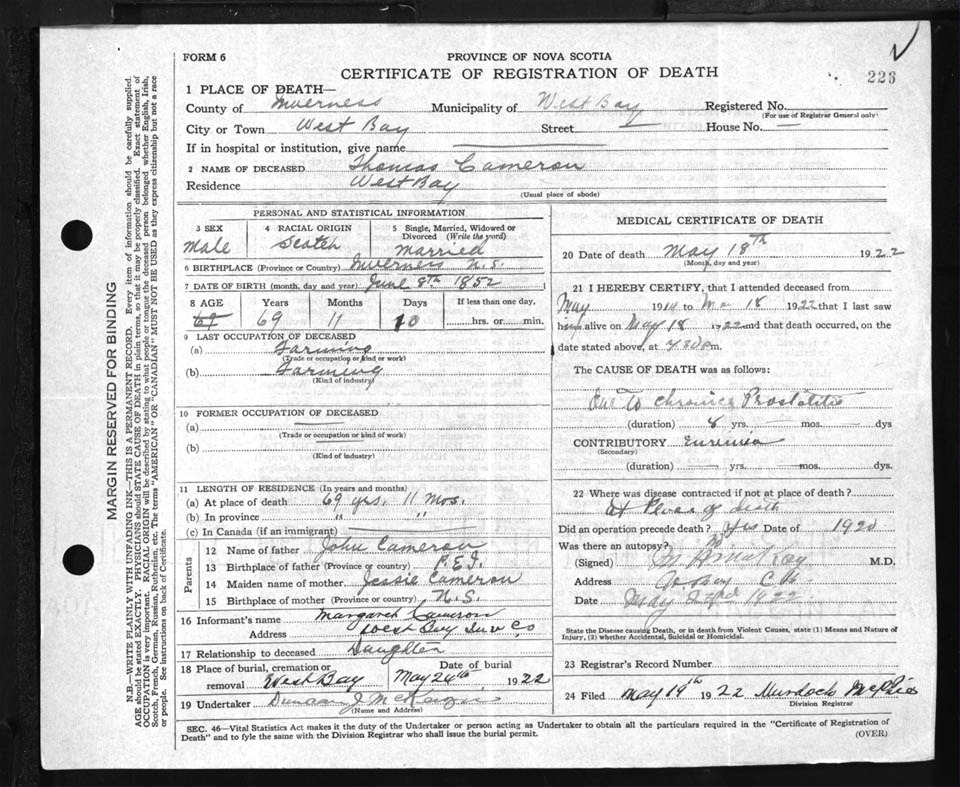 FORM 6
PROVINCE OF NOVA SCOTIA
CERTIFICATE OF REGISTRATION OF DEATH
223
1 PLACE OF DEATH—
County of Inverness Municipality of West Bay Registered No.
(For use of Registrar General only)
City or Town West Bay Street — House No. —
If in hospital or institution, give name
2 NAME OF DECEASED Thomas Cameron
Residence West Bay
(Usual place of abode)
PERSONAL AND STATISTICAL INFORMATION
3 SEX 4 RACIAL ORIGIN 5 Single, Married, Widowed or Divorced (Write the word)
Male Scotch Married
6 BIRTHPLACE (Province or Country) Inverness N.S.
7 DATE OF BIRTH (month, day, and year) June 8th 1852
8 AGE Years Months Days If less than one day,
69 69 11 10 hrs. or min.
9 LAST OCCUPATION OF DECEASED
(a) Farming
(Trade or occupation or kind of work)
(b) Farming
(Kind of industry)
10 FORMER OCCUPATION OF DECEASED
(a) —
(Trade or occupation or kind of work)
(b) —
(Kind of industry)
11 LENGTH OF RESIDENCE (In years and months)
(a) At place of death 69 yrs. 11 Mos.
(b) In province " "
(c) In Canada (if an immigrant)
Parents
12 Name of father John Cameron
13 Birthplace of father (Province or country) P.E.I.
14 Maiden name of mother Jessie Cameron
15 Birthplace of mother (Province or country) N.S.
16 Informant's name Margaret Cameron
Address West Bay Inv Co
17 Relationship to deceased Daughter
18 Place of burial, cremation or removal West Bay Date of burial May 20th, 1922
19 Undertaker Duncan J.
(Name and Address)
MEDICAL CERTIFICATE OF DEATH
20 Date of death May 18th 1922
(Month, day and year)
21 I HEREBY CERTIFY, that I attended deceased from
May 1914 to Ma 18 1922 that I last saw
him alive on May 18 1922 and that death occurred, on the
date stated above, at 7.30 P m.
The CAUSE OF DEATH was as follows:
Due to Chronic Prostatitis
(duration) 8 yrs. — mos. — dys.
CONTRIBUTORY
(Secondary)
(duration) — yrs. — mos. dys.
22 Where was disease contracted if not at place of death?
At Place of death
Did an operation precede death? Yes Date of 1920
Was there an autopsy? No
(Signed) M.D.
Address C.B.
Date May 22nd 1922
State the Disease causing Death, or in death from Violent Causes, state (1) Means and Nature of Injury, (2) whether Accidental, Suicidal or Homicidal.
23 Registrar's Record Number
24 Filed May 19th 1922 Murdoch
Division Registrar
SEC. 46—Vital Statistics Act makes it the duty of the Undertaker or person acting as Undertaker to obtain all the particulars required in the "Certificate of Registration of
Death" and to fyle the same with the Division Registrar who shall issue the burial permit. (OVER)
MARGIN RESERVED FOR BINDING
N.B.—WRITE PLAINLY WITH UNFADING INK—THIS IS A PERMANENT RECORD. Every item of information should be carefully supplied.
AGE should be stated EXACTLY. PHYSICIANS should STATE CAUSE OF DEATH in plain terms, so that it may be properly classified. Exact statement of
OCCUPATION is very important. RACIAL ORIGIN will be described by stating to what people or tongue the deceased person belonged whether English, Irish,
Scotch, French, German, Russian, Ruthenian, etc. The terms "AMERICAN" OR "CANADIAN" MUST NOT BE USED as they express citizenship but not a race
or people. See instructions on back of Certificate.